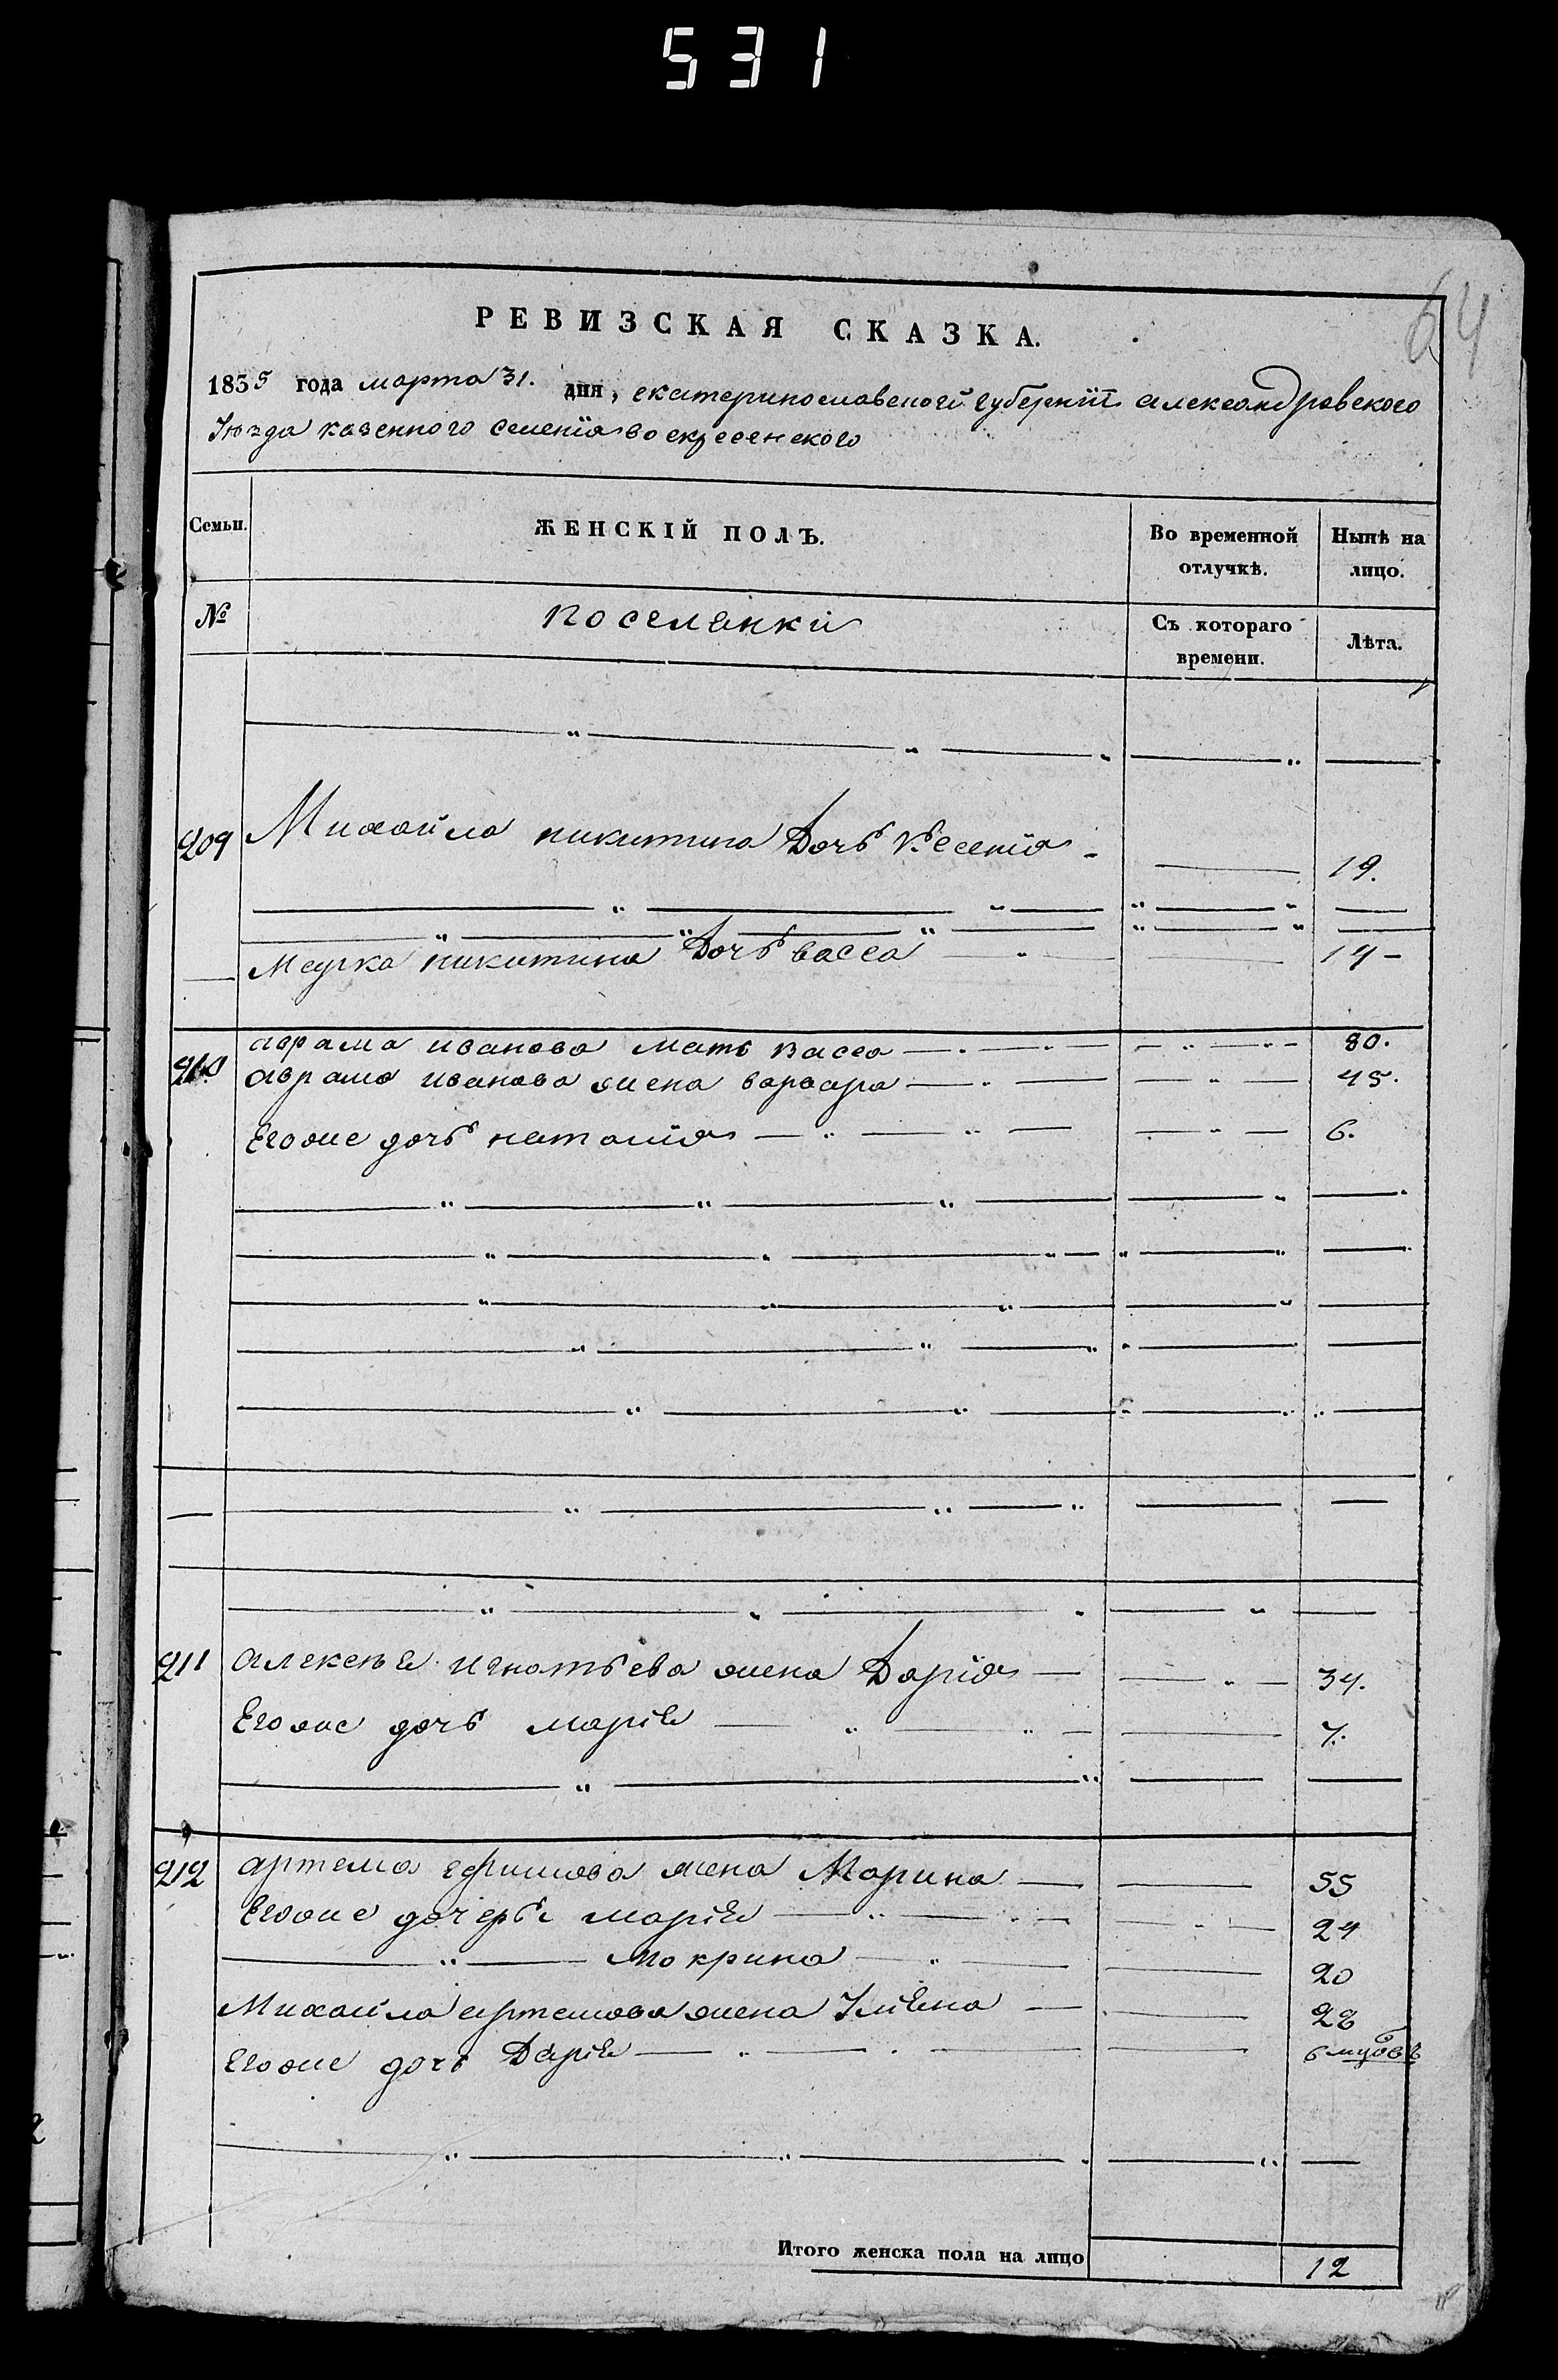 531
64
РЕВИЗСКАЯ СКАЗКА.
1835 года марта 31. дня, екатеринославской губернїи александровского
Уѣзда казенного селенїя воскресенского
Семьи. ЖЕНСКІЙ ПОЛЪ. Во временной отлучкѣ. Нынѣ на лицо.
№ поселянки Съ котораго времени. Лѣта.
209 Михайла никитина дочь Ксенїя 19.
Марка никитина дочь васса 14
210 аврама иванова мать васса 80.
аврама иванова жена варвара 45.
Егоже дочь наталїя 6.
211 алексея игнатьева жена Дарїя 34.
Егоже дочь марїя 7.
212 артема ефимова жена Марина 55
Егоже дочерьи марїя 24
мокрина 20
Михайла артемова жена Улияна 28
Егоже дочь Дарїя 6 мцовъ
Итого женска пола на лицо 12